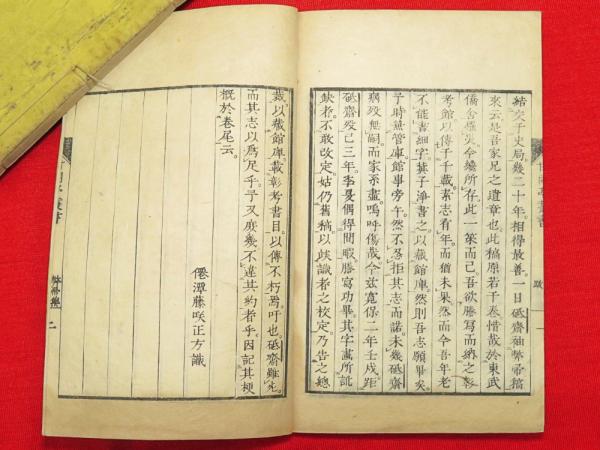 結交于史局幾二十年。相得故善。一日砥齋袖弊帚稿
來云是吾家兄之遺章也。此稿原若干卷惜哉於東武
僑舍罹災今纔所存此一策而已。吾欲謄寫而納之彰
考館以傳于千載。素志有年。而猶未果然而今吾年老
不能書細字冀子淨書之以藏館庫。然則吾志願畢矣。
予時兼管庫館事旁午。然不忍拒其志而諾。未幾砥齋
病歿無嗣。而家系盡。嗚呼傷哉。今玆寬保二年壬戌距
砥齋歿已三年。李夏偶得閒暇。謄寫功畢。其字寓所訛
缺者。不敢改定。姑仍舊稿以竢識者之校定。乃告之總
裁以藏館庫載彰考書目。以傳不朽焉。吁也砥齋雖死。
而其志以爲足乎。予又庶幾不違其約者乎。因記其梗
概於卷尾云。
僊潭藤咲正方識
跋
一
二